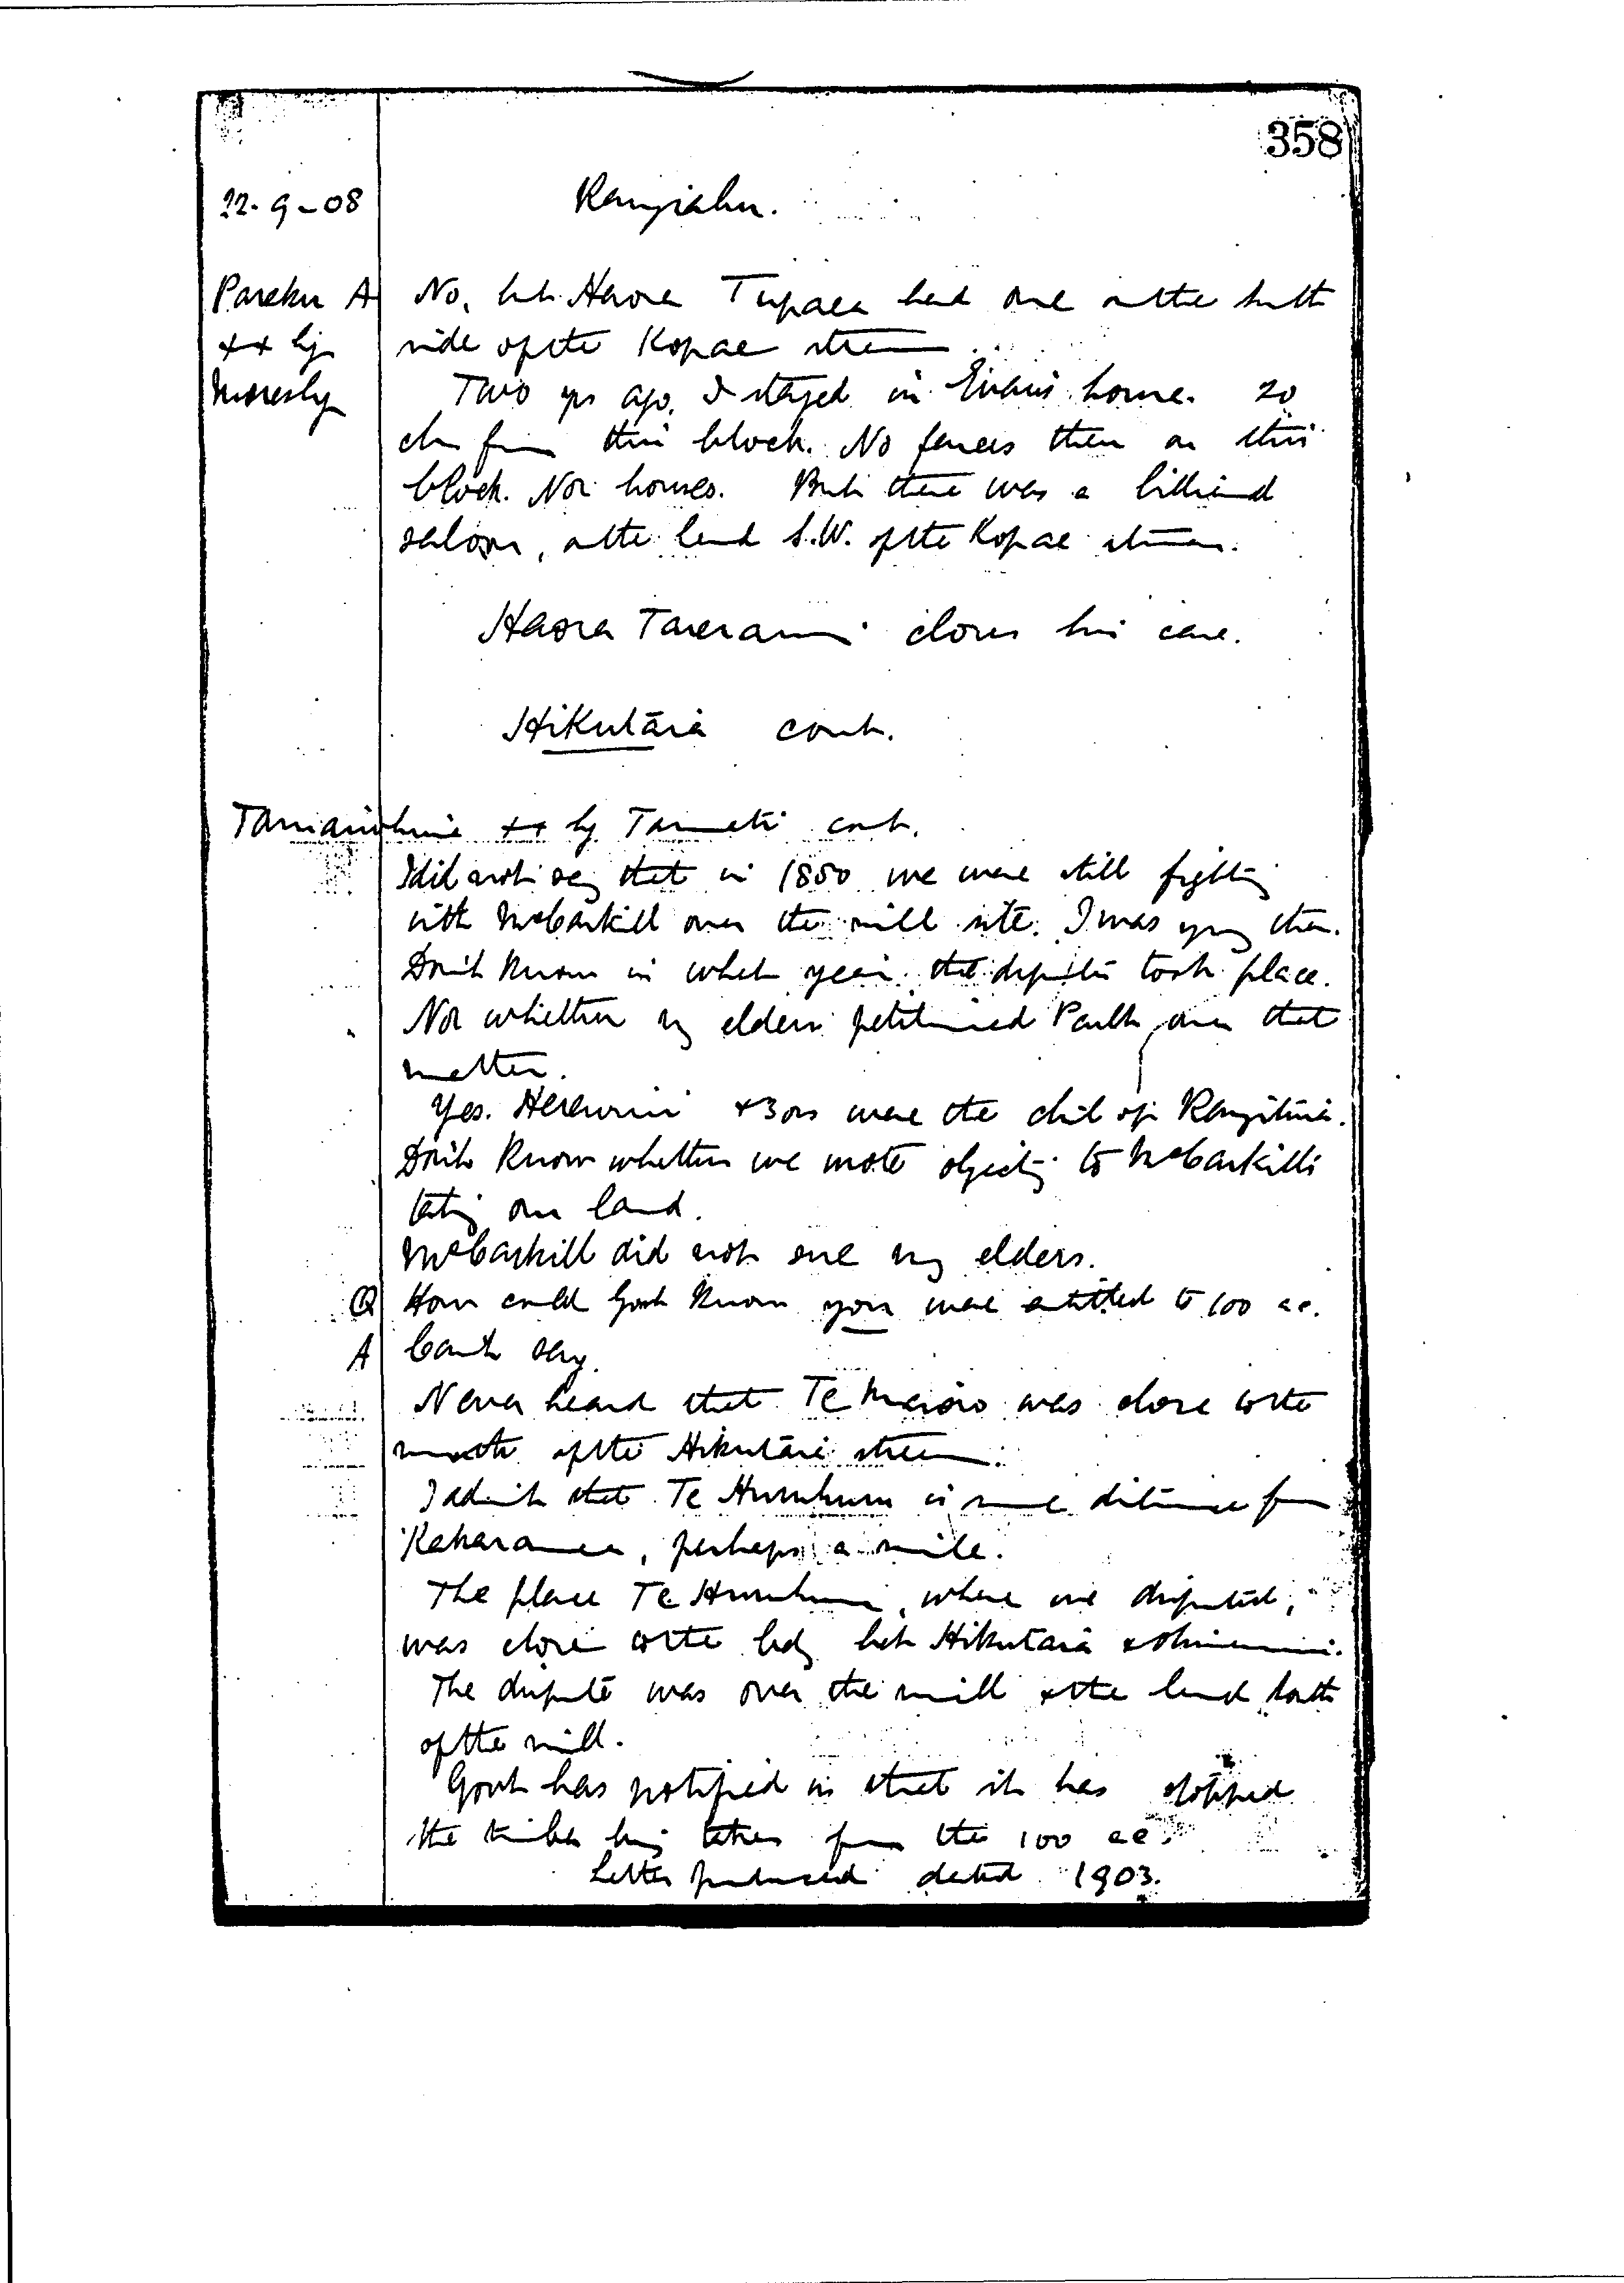 358
22-9-08 Rangiahu.
Pareku A No, but Haora Tupaea had one on the south
xx by side of the Kopae stream
Moresby Two yrs ago, I stayed in Evans' house. 20
chs from this block. No fences then on this
block. Nor houses. But there was a billiard
saloon, on the land S.W. of the Kopae stream.
Haora Tareranui closes his case.
Hikutāia cont.
Tamaiwhina xx by Tameti cont.
I did not say that in 1880 we were still fighting
with McCaskill over the mill site. I was yng then.
Don't know in what year the dispute took place.
Nor whether my elders petitioned Parlt over that
matter.
Yes. Herewini & 3 ors were the chil of Rangituia.
Don't know whether we wrote objecting to McCaskill's
taking our land.
McCaskill did not sue my elders.
Q How could Govt know you were entitled to 100 ac.
A Can't say.
Never heard that Te was close to the
mouth of the Hikutāia stream.
I admit that Te Huruhuru is some distance from
, perhaps a mile.
The place Te Huruhuru, where we disputed,
was close to the bdy bet Hikutaia &
The dispute was over the mill & the land south
of the mill.
Govt has notified us that it has stopped
the timber being taken from the 100 ac.
Letter produced dated 1903.